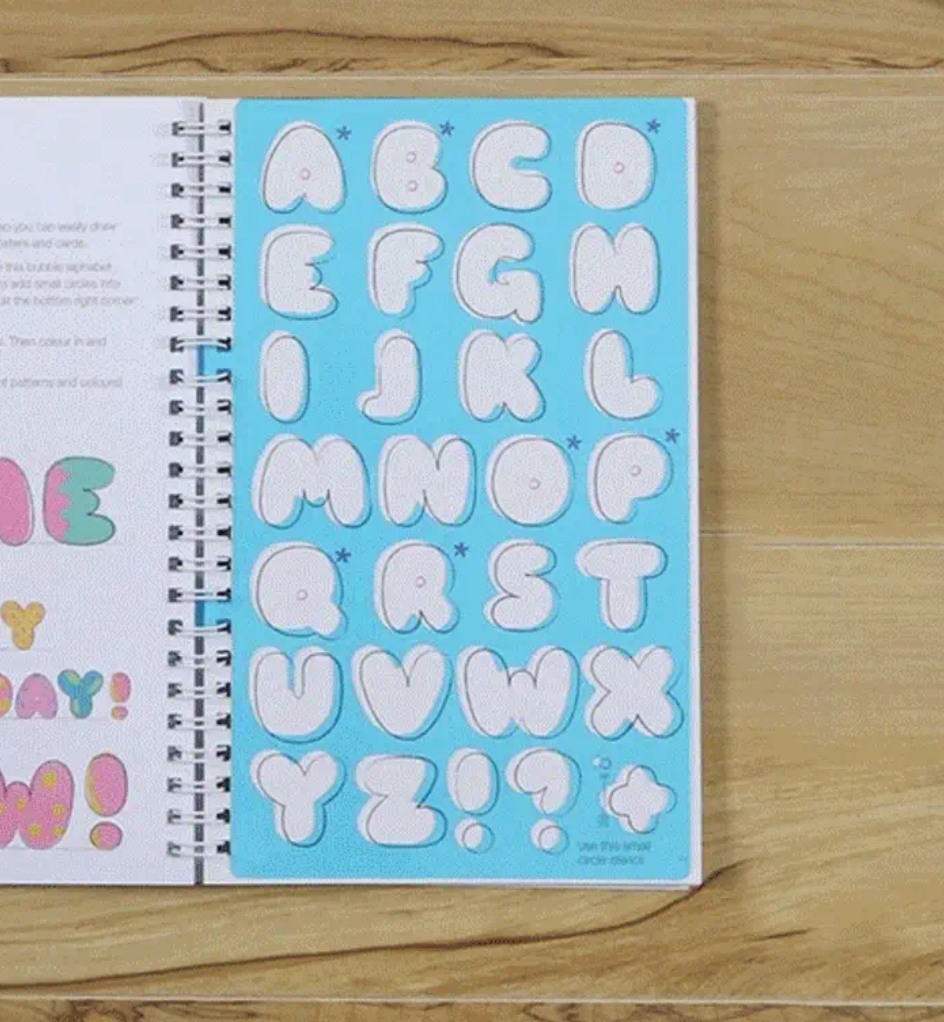 so you can easily draw
posters and cards.
this bubble alphabet
add small circles into
at the bottom right corner
Then colour in and
patterns and colours!
E
Y
AY!
W!
A* B* C D*
E F G H
I J K L
M N O* P*
Q* R* S T
U V W X
Y Z ! ? +
use this small
circle stencil